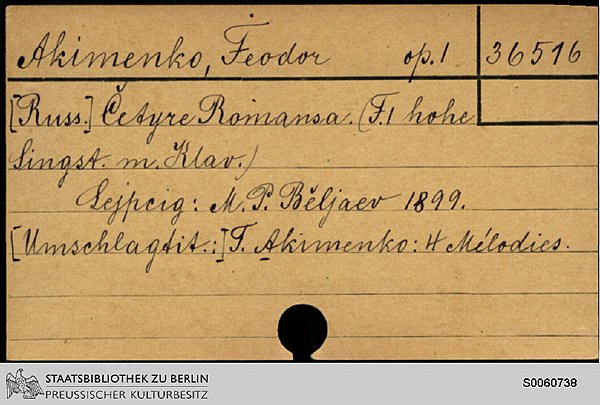 Akimenko, Feodor op. 1 36516
[Russ.] Četyre Romansa. (F. 1 hohe
Singst. m. Klav.)
Lejpcig: M. P. Běljaev 1899.
[Umschlagtit.:] T. Akimenko: 4 Mélodies.
STAATSBIBLIOTHEK ZU BERLIN
PREUSSISCHER KULTURBESITZ
S0060738